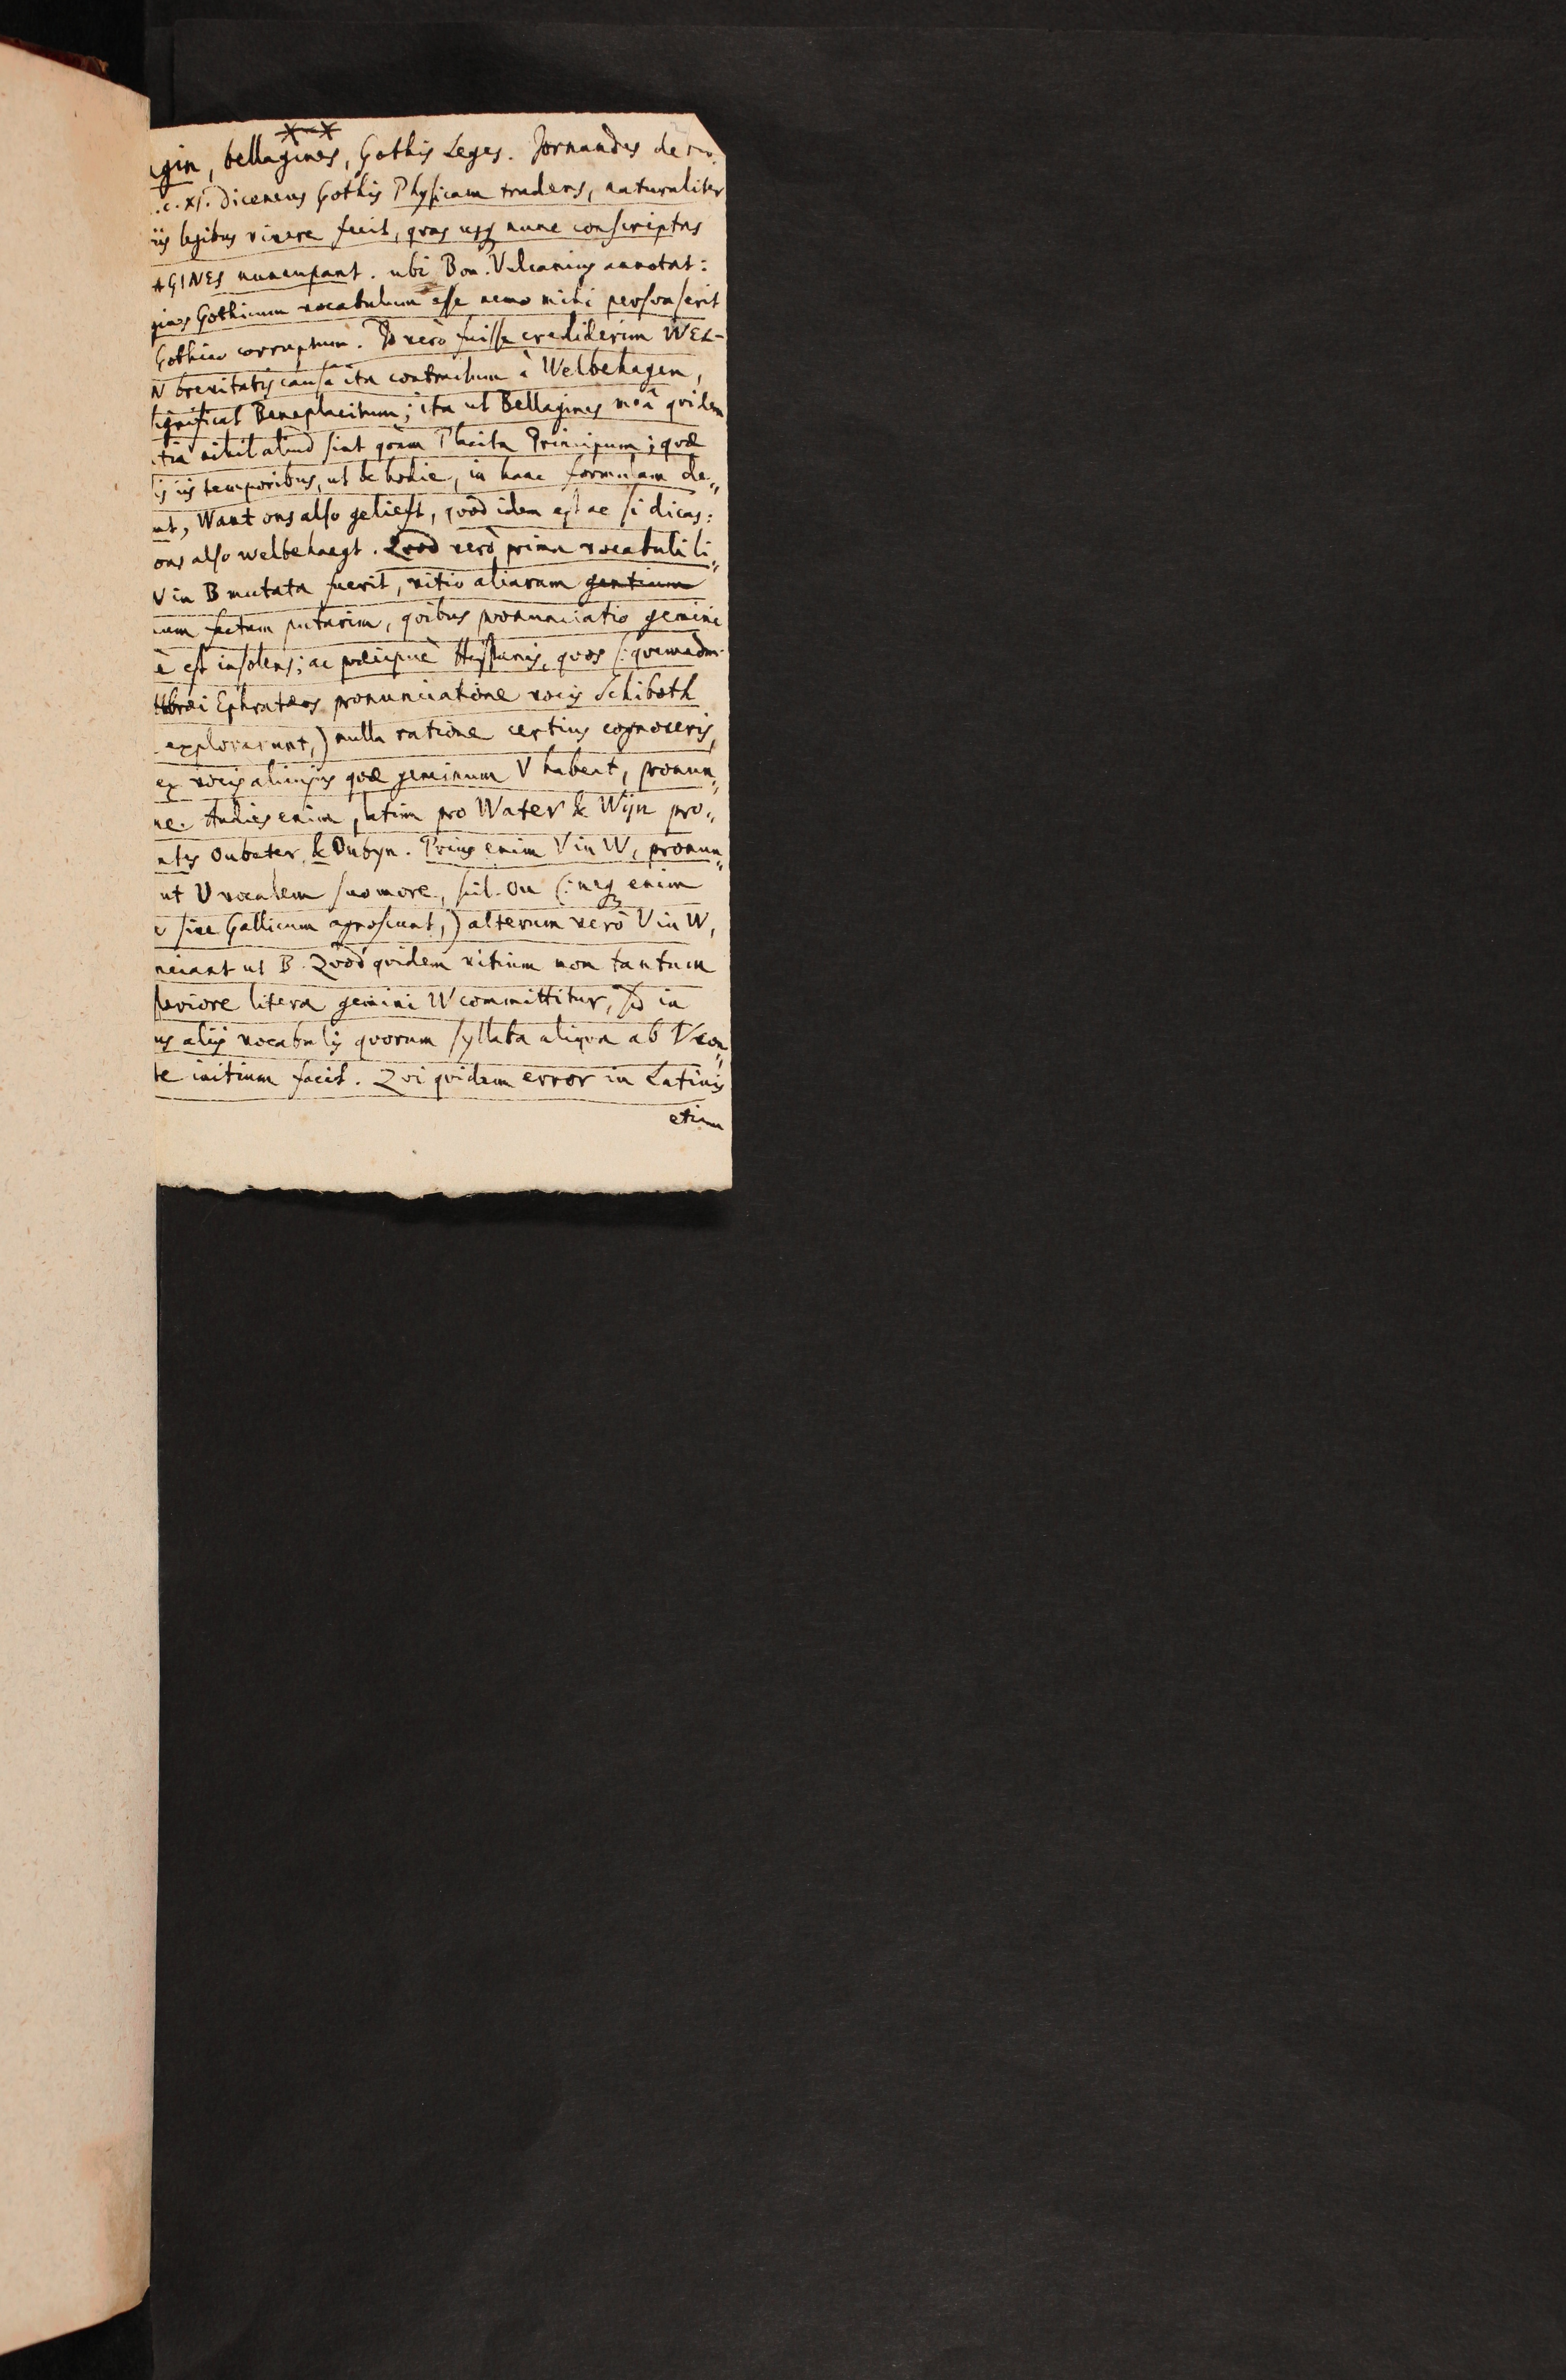 agin, bellagines, Gothis Leges. Jornandes de
.c. XI. Diceneus Gothis Physicam tradens, naturaliter
iis legibus vivere fecit, qvas usq nunc conscriptas
AGINES nuncupant. ubi Bon. Vulcanius annotat:
gines Gothicum vocabulum esse nemo mihi persvaserit
Gothico corruptum. Id verò fuisse crediderim WEL-
N brevitatis causâ ita contractum à Welbehagen,
significat Beneplacitum; ita ut Bellagines meâ qvidem
tiâ nihil aliud sint qvàm Placita Principum; qvæ
is iis temporibus, ut & hodie, in hanc formulam de„
nt, Want ons also gelieft, qvod idem est ac si dicas:
ons also welbehaegt. Qvod verò prima vocabuli li„
V in B mutata fuerit, vitio aliarum gentium
um factum putarim, qvibus pronunciatio gemini
è est insolens; ac præcipuè Hispanis, qvos (: qvemadm.
Hebræi Ephratæos pronunciatione vocis Schiboth
explorarunt,) nulla ratione certius cognoceris,
ex vocis alicujus qvæ geminum V habeat, pronun„
ne. Audies enim statim pro Water & Wijn pro„
ntes Oubater & Oubyn. Prius enim V in W, pronun„
ut V vocalem suo more, scil. ou (: neq enim
sive Gallicum agnoscunt,) alterum verò V in W,
nciant ut B. Qvod qvidem vitium non tantum
steriore litera gemini W committitur, sed in
us aliis vocabulis qvorum syllaba aliqva ab V con„
te initium facit. Qvi qvidem error in Latinis
etiam